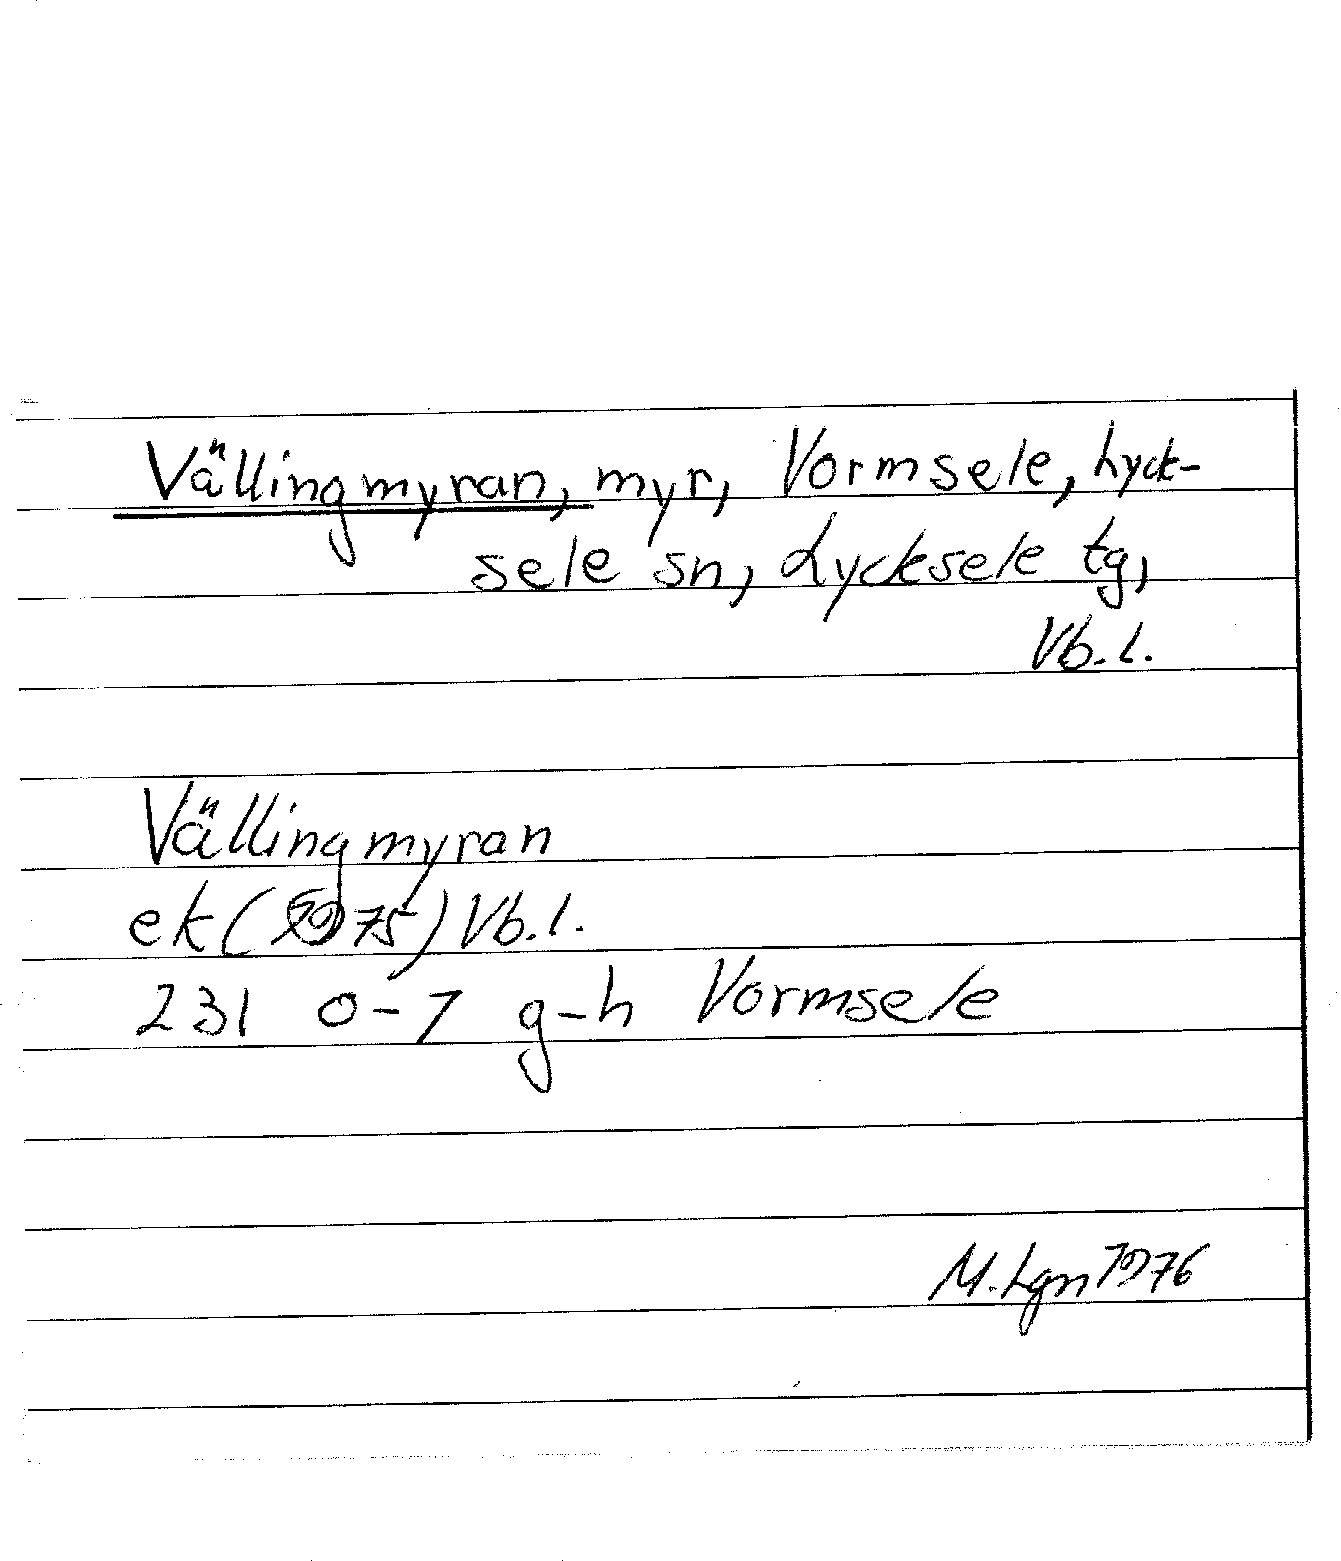 Vällingmyran, myr, Vormsele, Lyck-
sele sn, Lycksele tg,
Vb.l.
Vällingmyran
ek (1975) Vb.l.
231 0-7 g-h Vormsele
M. Lgn 1976